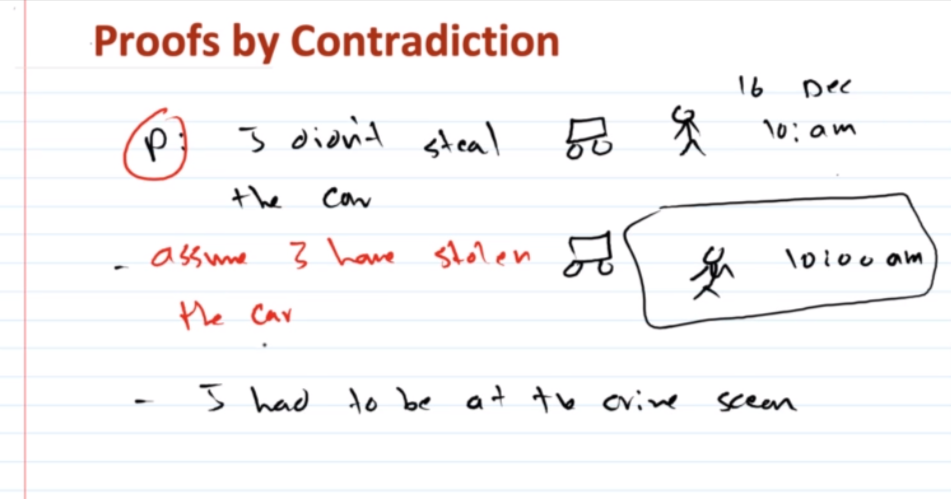 Proofs by Contradiction
16 Dec
P: I didn't steal 10: am
the car
- assume I have stolen 10:00 am
the car
- I had to be at the crime sceen